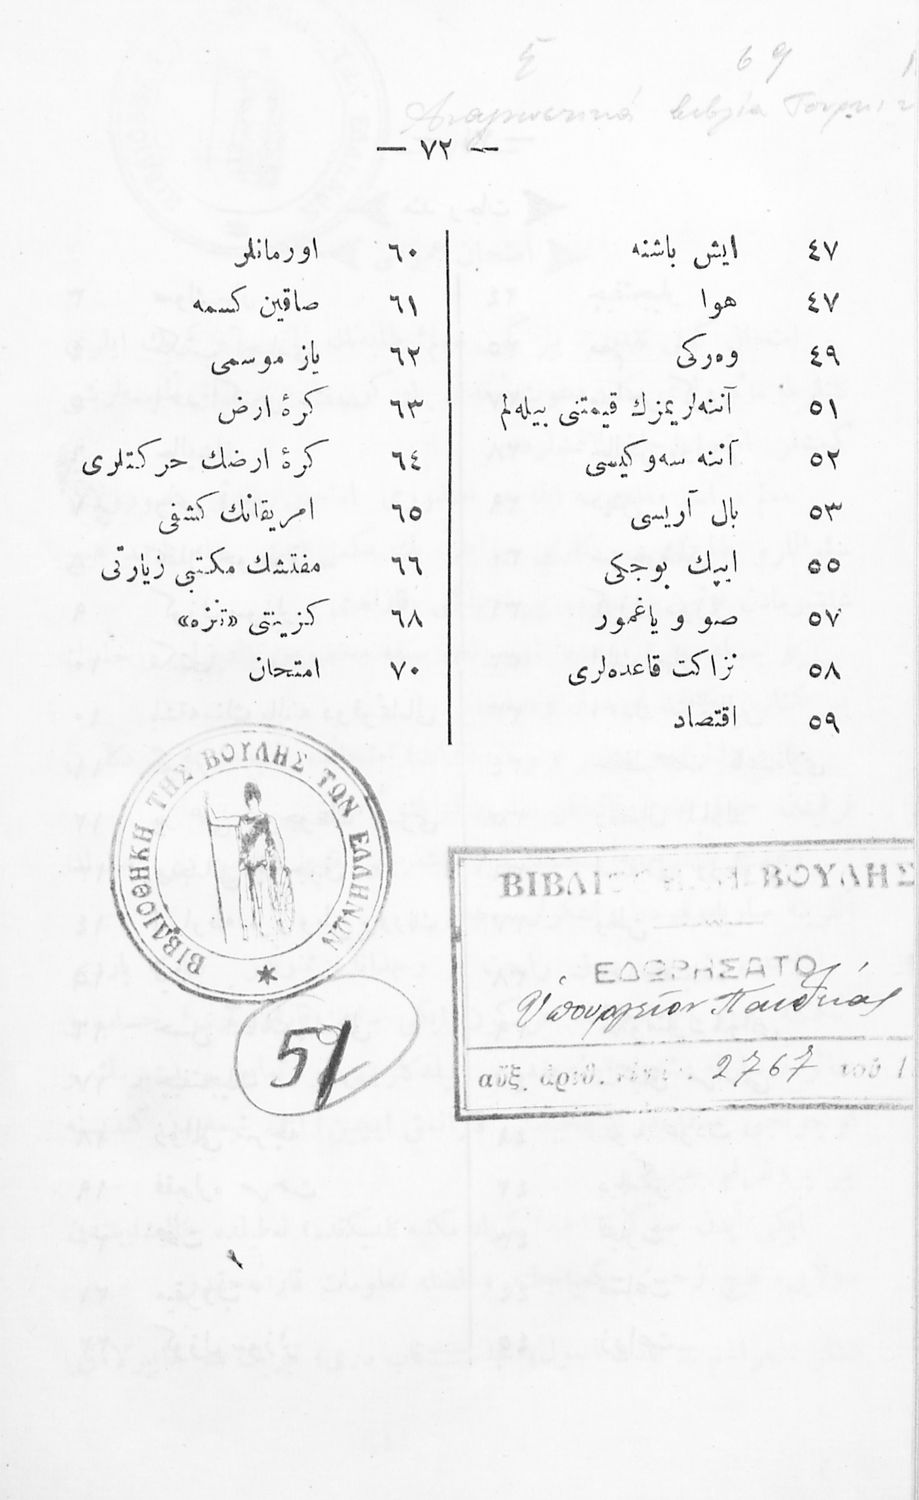 Ἀναγνωστικὰ βιβλία
— ٧٢ —
٤٧ ايش باشنه
٤٧ هوا
٤٩ وه‌ركی
٥١ آننه‌لريمزك قيمتنی بيله‌لم
٥٢ آننه سه‌وكيسی
٥٣ بال آريسی
٥٥ ايپك بوجكی
٥٧ صو و ياغمور
٥٨ نزاكت قاعده‌لری
٥٩ اقتصاد
٦٠ اورمانلر
٦١ صاقين كسمه
٦٢ ياز موسمی
٦٣ كرۀ ارض
٦٤ كرۀ ارضك حركتلری
٦٥ امريقانك كشفی
٦٦ مفتشك مكتبی زيارتی
٦٨ كزينتی «تنزه»
٧٠ امتحان
ΒΙΒΛΙΟΘΗΚΗ ΤΗΣ ΒΟΥΛΗΣ ΤΩΝ ΕΛΛΗΝΩΝ
51
ΒΟΥΛΗΣ
ΕΔΩΡΗΣΑΤΟ
Ὑπουργεῖον Παιδείας
αὔξ. ἀριθ. 2767 τοῦ